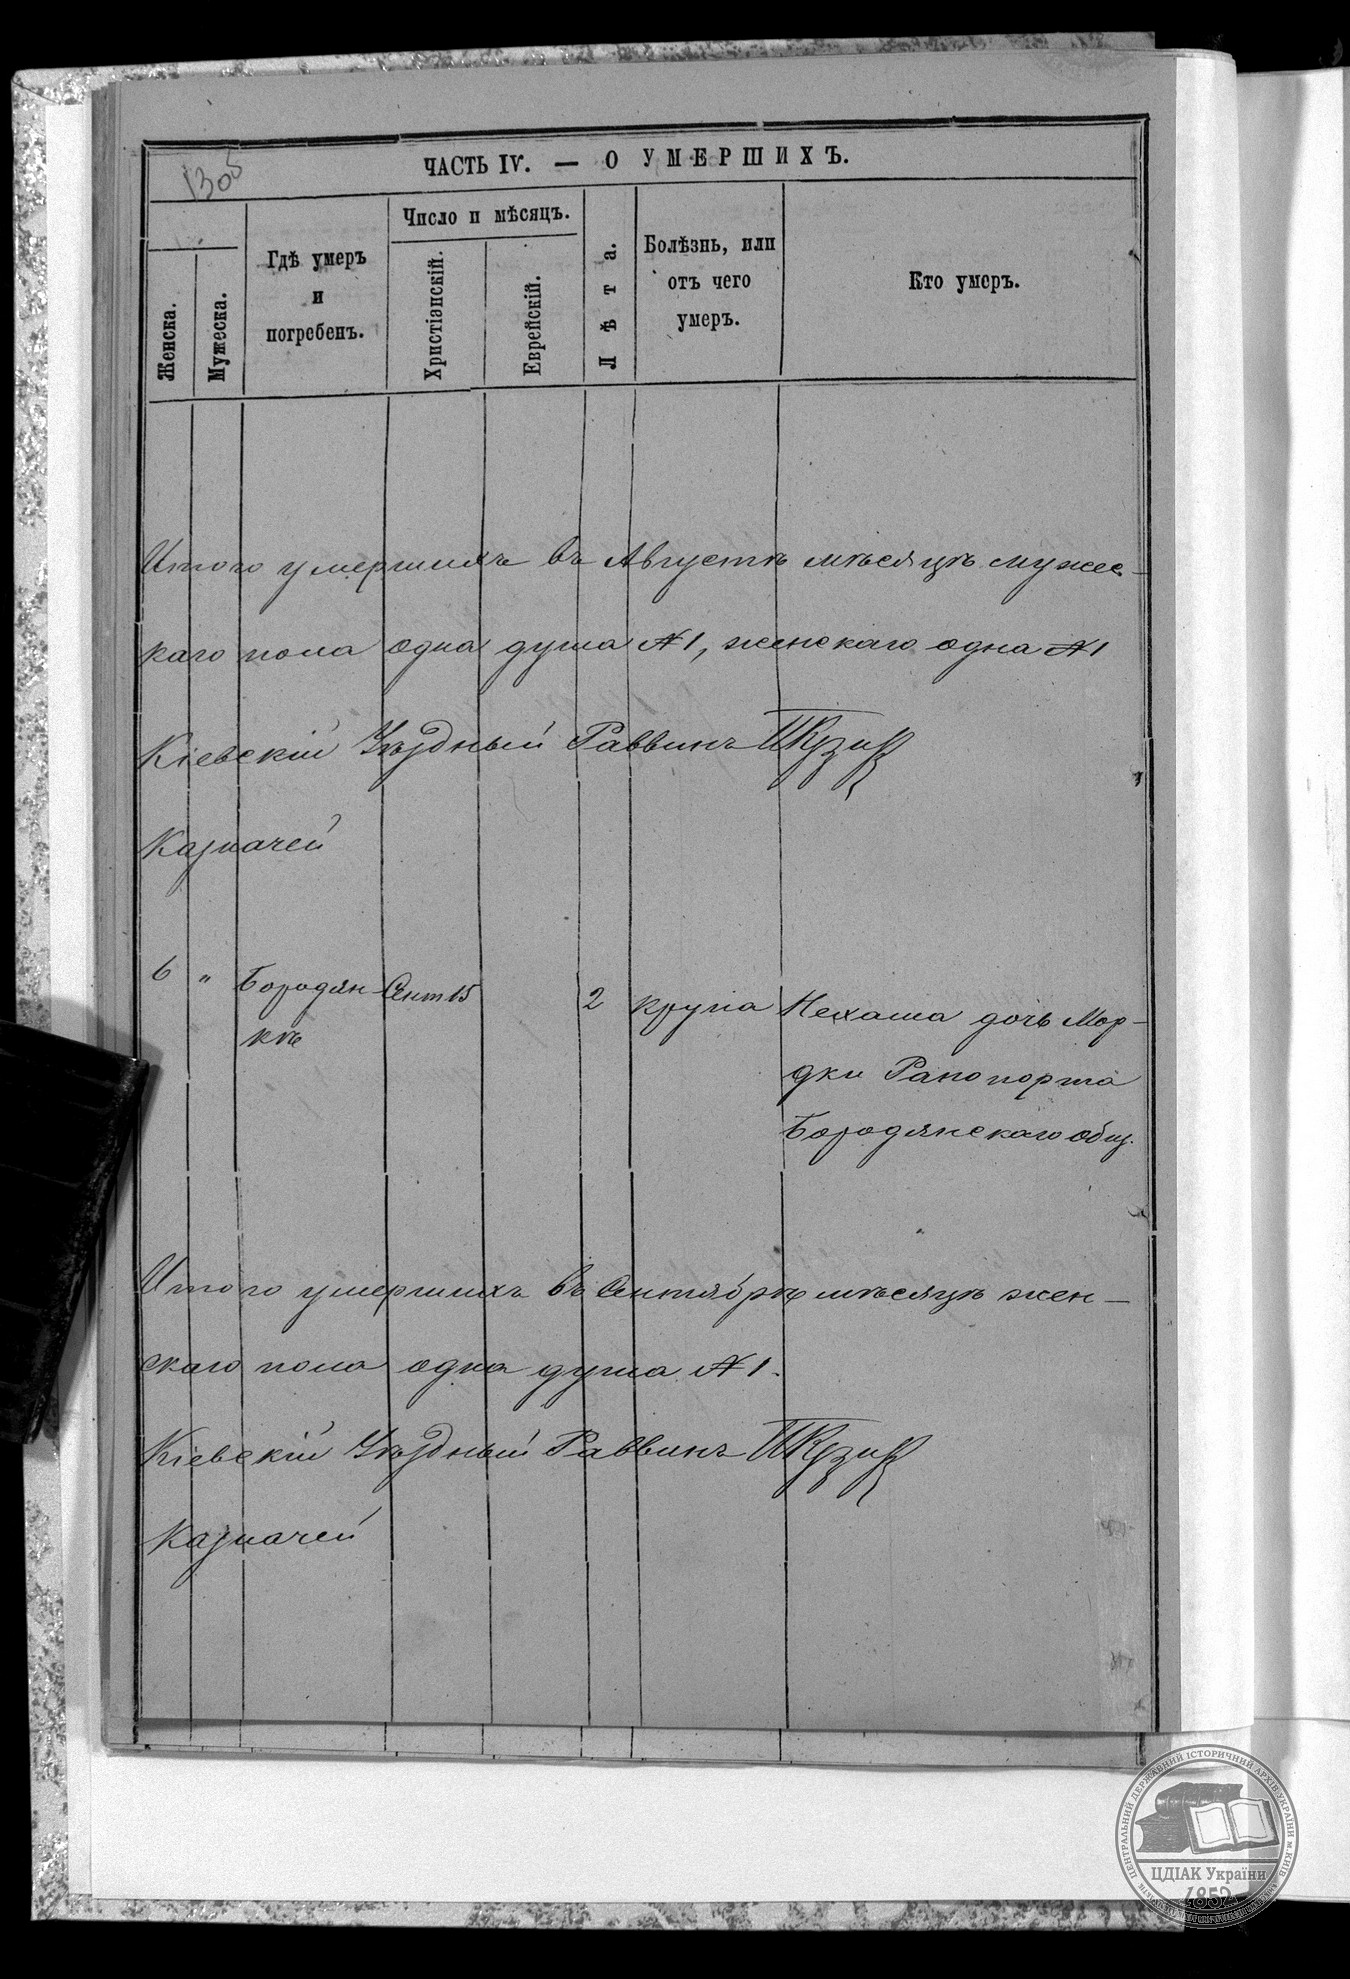 1305
ЧАСТЬ IV. — О УМЕРШИХЪ.
Женска.
Мужеска.
Гдѣ умеръ
и
погребенъ.
Число и мѣсяцъ.
Христіанскій.
Еврейскій.
Лѣта.
Болѣзнь, или
отъ чего
умеръ.
Кто умеръ.
Итого умершихъ въ Августѣ мѣсяцѣ мужес-
каго пола одна душа №1, женскаго одна №1
Кіевскій Уѣздный Раввинъ
Казначей
6 " Бородян- Сент 15 2 крупа Нехаша дочь Мор-
кѣ
дки Рапопорта
Бородянскаго общ.
Итого умершихъ въ Сентябрѣ мѣсяцѣ жен-
скаго пола одна душа №1.
Кіевскій Уѣздный Раввинъ
Казначей
ЦЕНТРАЛЬНИЙ ДЕРЖАВНИЙ ІСТОРИЧНИЙ АРХІВ УКРАЇНИ м. КИЇВ
ЦДІАК України
1852